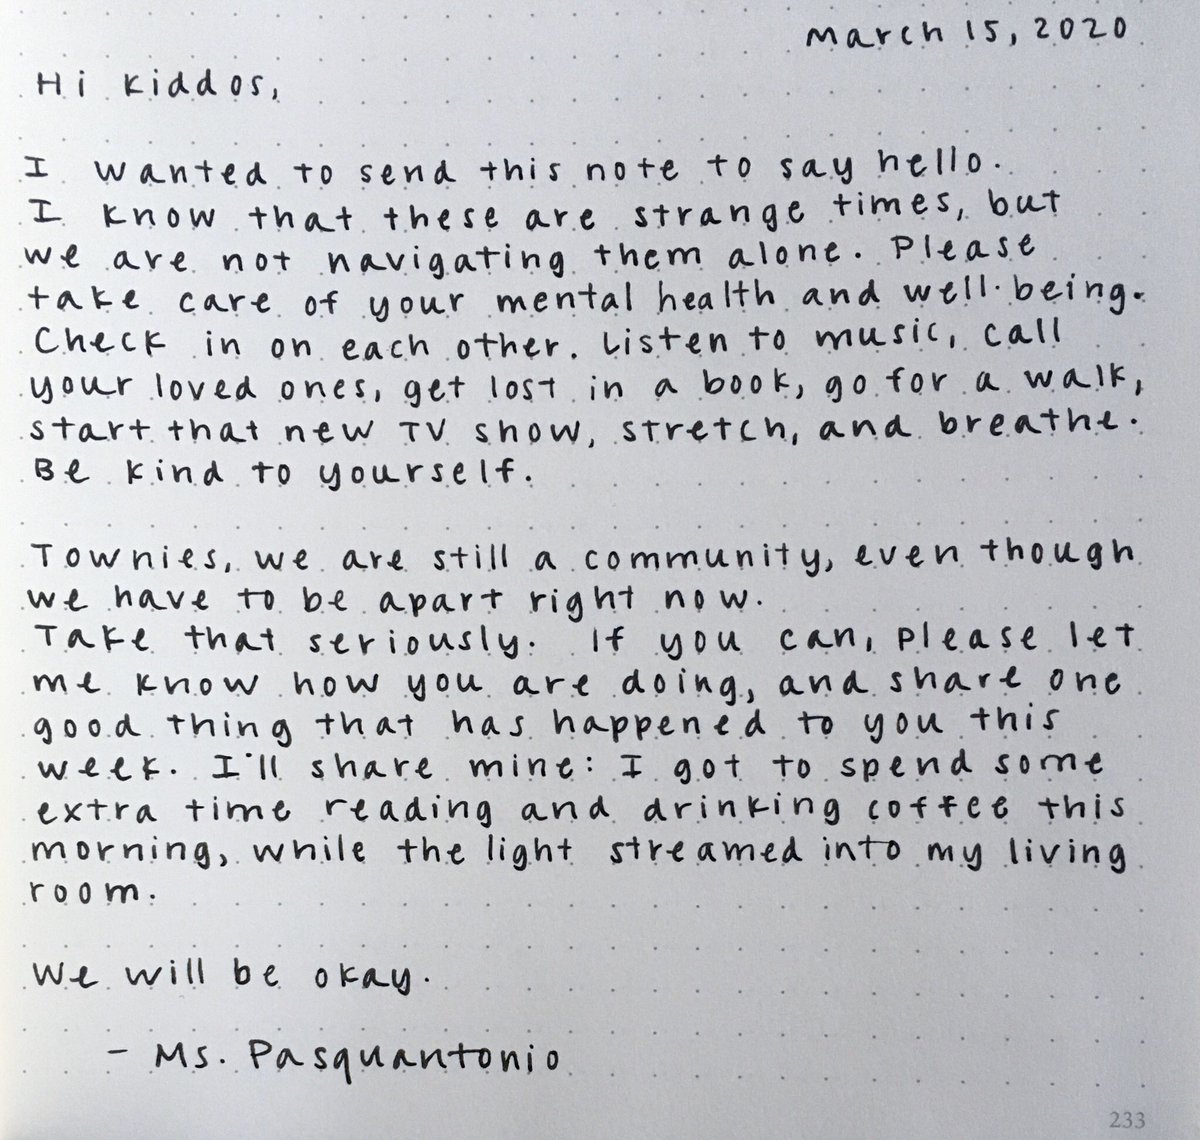 March 15, 2020
Hi Kiddos,
I wanted to send this note to say hello.
I know that these are strange times, but
we are not navigating them alone. Please
take care of your mental health and well-being.
Check in on each other. Listen to music, call
your loved ones, get lost in a book, go for a walk,
start that new TV show, stretch, and breathe.
Be kind to yourself.
Townies, we are still a community, even though
we have to be apart right now.
Take that seriously. If you can, please let
me know how you are doing, and share one
good thing that has happened to you this
week. I'll share mine: I got to spend some
extra time reading and drinking coffee this
morning, while the light streamed into my living
room.
We will be okay.
- Ms. Pasquantonio
233